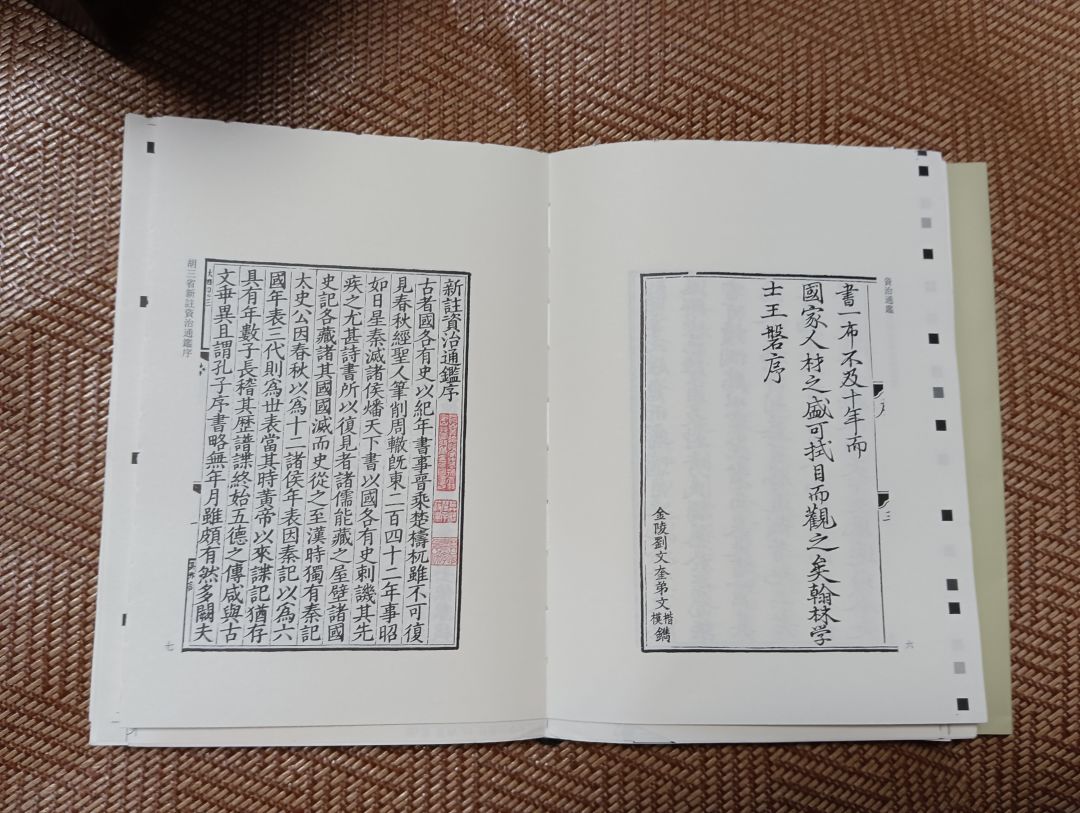 資治通鑑
書一布不及十年而
國家人材之盛可拭目而觀之矣翰林学
士王磐序
金陵劉文奎弟文楷模鐫
三
六
新註資治通鑑序
古者國各有史以紀年書事晉乘楚檮杌雖不可復
見春秋經聖人筆削周轍旣東二百四十二年事昭
如日星秦滅諸侯燔天下書以國各有史刺譏其先
疾之尤甚詩書所以復見者諸儒能藏之屋壁諸國
史記各藏諸其國國滅而史從之至漢時獨有秦記
太史公因春秋以爲十二諸侯年表因秦記以爲六
國年表三代則爲世表當其時黃帝以來諜記猶存
具有年數子長稽其歷譜諜終始五德之傳咸與古
文乖異且謂孔子序書略無年月雖頗有然多闕夫
胡三省新註資治通鑑序
七